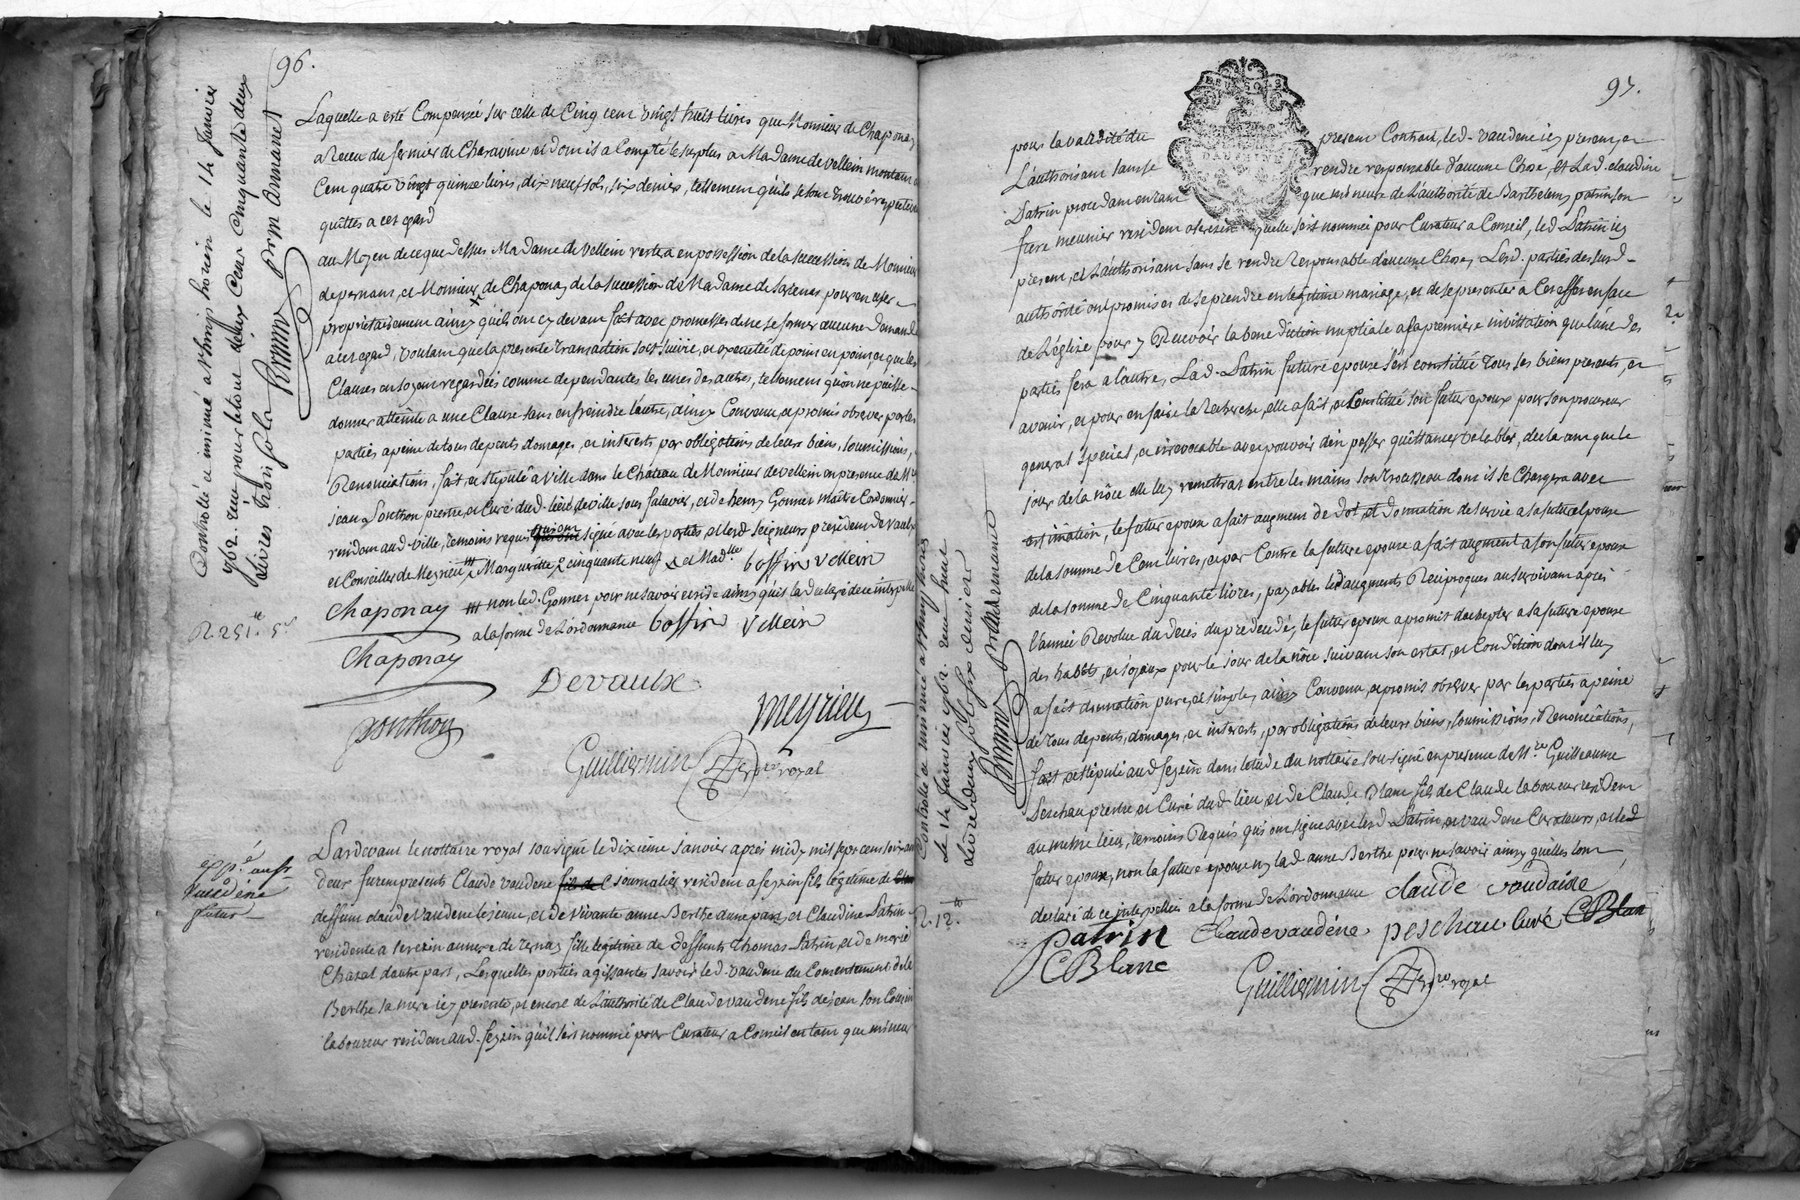 96.
Controllé et insinué a st simphorien le 14 Janvier
1762. reçu pour le tout deux cent cinquante deux
livres trois sols
Laquelle a esté Compensée sur celle de Cinq cent vingt huit livres que Monsieur de Chaponay
a Receu du fermier de Charconne et dont il a Compté le surplus a Madame de Vellein montant a
Cent quatre vingt quinze livres, dix neuf sols, six deniers, tellement qu'ils se sont trouvé respectivem
quittes a cet egard
au Moyen de ce que dessus Madame de Vellein restera en possession de la succession de Monsieur
de pernans, et Monsieur de Chaponay de la succession de Madame de Sarenas pour en user
propriétairement ainsy qu'ils ont cy devant fait avec promesses de ne se former aucune demande
a cet egard, voulant que la presente transaction soit suivie, et executée de point en point, et que les
Clauses en soyent regardées comme dependantes les unes des autres, tellement qu'on ne puisse
donner atteinte a une Clause sans enfreindre l'autre, ainsy Convenu, et promis observer par les
parties a peine de tous depents domages, et interests, par obligations de leurs biens, soumissions,
Renonciations, fait, et stipulé a Ville dans le Château de Monsieur de Vellein en presence de Mre
jean Ponthon prestre, et Curé dud. lieu de ville sous , et de henry Gonnet maître Cordonnier
residant aud. Ville, temoins requis qui ont signé avec les parties, et lesd. Seigneurs president de Vaulx
et Conseiller de Meyrieu Marguerite cinquante neuf et Madlle boffin Vellein
Chaponay non led. Gonnet pour ne savoir ecrire ainsy qu'il l'a declaré de ce interpellé
R. 251. 5s a la forme de L'ordonnance boffin Vellein
Chaponay
Devaulx
ponthon Meyrieu
Guilliermin Nre royal
Pardevant le nottaire royal sousigné le dixieme janvier après midy mil sept cens soixante
deux furent presents Claude vaudene fils de C journalier resident a feyzin fils légitime de
deffunt claude Vaudene le jeune, et de Vivante anne Berthe d'une part, et Claudine Patrin
residente a serezin annexe de Ternay fille légitime de deffunts Thomas Patrin, et de marie
Chazal d'autre part, Lesquelles parties agissantes savoir led. vaudene du Consentement de lad.
Berthe sa mere icy presente, et encore de L'authorité de Claude vaudene fils de jean son Cousin
laboureur residant aud. feyzin qu'il s'est nommé pour Curateur a Conseil en tant que mineur
97.
pour la validité du present Contract, led. vaudene icy present, et
L'authorisant sans se rendre responsable d'aucune Chose, Et Lad. claudine
Patrin procedant en tant que mineure de L'authorité de Barthelemy patrin son
frere meunier resident a serezin laquelle s'est nommée pour Curateur a Conseil, led. Patrin icy
present, et L'authorisant sans se rendre Responsable d'aucune Chose, Lesd. parties desusd.
authorité ont promis de se prendre en légitime mariage, et de se presenter a Cet effet en face
de L'église pour y Recevoir la bene diction nuptiale a la premiere invittation que l'une des
parties fera a l'autre, Lad. Patrin future epouse s'est constitué tous ses biens presents, et
avenir, et pour en faire la Recherche, elle a fait, et Constitué son futur epoux pour son procureur
general special, et irrevocable avec pouvoir d'en passer quittances valables, declarant que le
jour de la nôce elle luy remettrat entre les mains son trousseau dont il se Chargera avec
estimation, le futur epoux a fait augment de dot, et donnation de survie a sa future epouse
de la somme de Cent livres, et par Contre la future epouse a fait augment a son futur epoux
de la somme de Cinquante livres, payables lesd. augments Réciproques au survivant après
l'année Revolue du decès du prédecedé, le futur epoux a promit d'acheter a sa future epouse
des habits, et joyaux pour le jour de la nôce suivant son estat, et Condition dont il luy
a fait donnation pure, et simple, ainsy Convenu, et promis observer par les parties a peine
de tous depents, domages, et interests, par obligations de leurs biens, soumissions, Renonciations,
fait, et stipulé aud. feyzin dans l'etude du nottaire sousigné en presence de Mre Guilleaume
Peschau prestre et Curé dud. lieu, et de Claude Blanc fils de Claude laboureur resident
au même lieu, temoins Requis qui ont signé avec lesd. Patrin, et vaudene Curateurs, et led.
futur epoux, non la future epouse ny lad. anne Berthe pour ne savoir ainsy quelles l'ont
declaré de ce interpellées a la forme de L'ordonnance claude vaudaine
patrin Claudevaudéne peschau Curé C Blan
C Blanc
Guilliermin Nre royal
Controllé et insinué a st simphorien
Le 14 Janvier 1762. reçu huit
livres deux sols six deniers
R. 12.